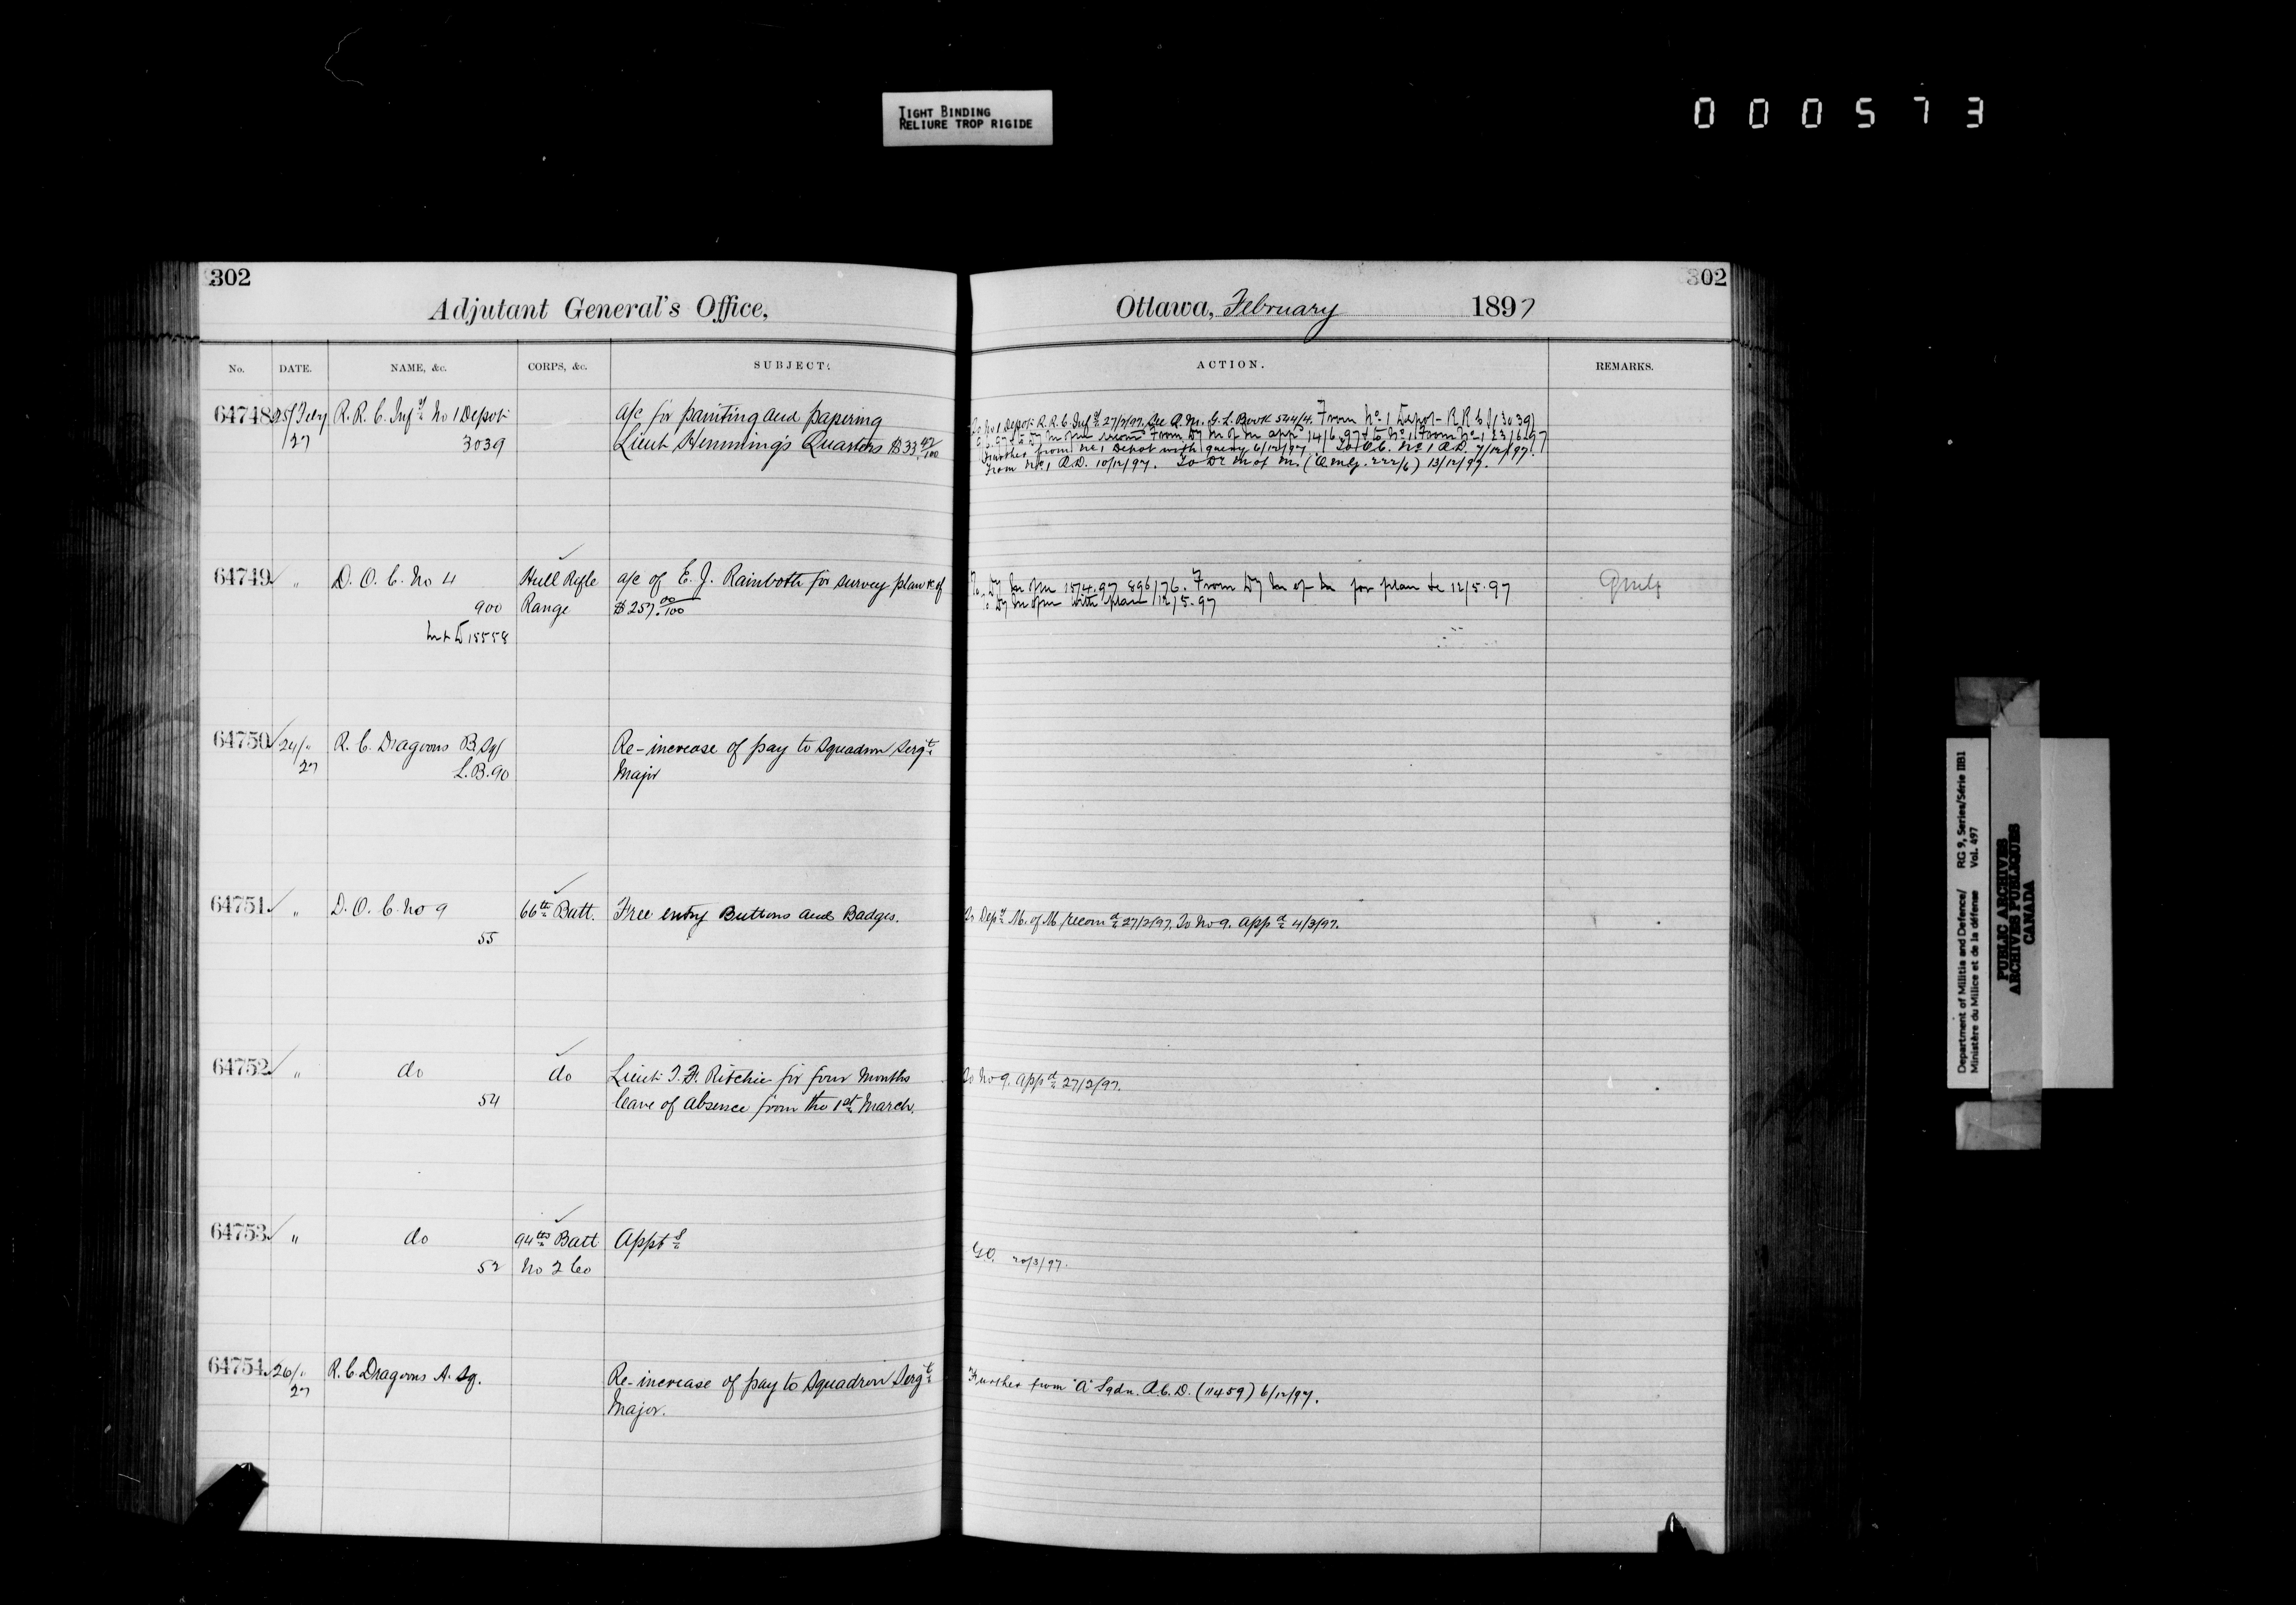 TIGHT BINDING
RELIURE TROP RIGIDE
000573
302
Adjutant General's Office,
No. DATE. NAME, &c. CORPS, &c. SUBJECT.
64748 25/Feby R.R.C. Infy No 1 Depot a/c for painting and papering
27 3039 Lieut Hemming's Quarters $33 42/100
64749 " D.O.C. No 4 Hull Rifle a/c of E.J. Rainboth for survey plan &c of
900 Range $257.00/100
15558
64750 24/" R.C. Dragoons B Sq/ Re-increase of pay to Squadron Sergt
27 L.B.90 Major
64751 " D.O.C. No 9 66th Batt. Free entry Buttons and Badges.
55
64752 " do do Lieut T.F. Ritchie for four months
54 leave of absence from the 1st March.
64753 " do 94th Batt Appt
52 No 2 Co
64754 26/" R.C. Dragoons A. Sq. Re-increase of pay to Squadron Sergt
27 Major.
302
Ottawa, February 1897
ACTION. REMARKS.
To No 1 Depot R.R.C. Inf 27/2/97. See A.M.G.L. Book 544/4. From No 1 Depot - RRCI (3039)
Further from No 1 Depot with query 6/12/97. To O.C. No 1 R.D. 7/12/97.
From No 1 R.D. 10/12/97. To Dr M of M. 13/12/97.
To Dy M of M 15/4.97 896/76. From Dy M of M for plan &c 12/5.97
To Dy M of M with plan 12/5.97
To Depy M. of M. recomd 27/2/97. To No 9. appd 4/3/97.
To No 9. appd 27/2/97.
G.O. 20/3/97.
Further from "A" Sqdn. R.C.D. (11459) 6/12/97.
Department of Militia and Defence/ RG 9, Series/Série IIB1
Ministère du Milice et de la défense Vol. 497
PUBLIC ARCHIVES
ARCHIVES PUBLIQUES
CANADA